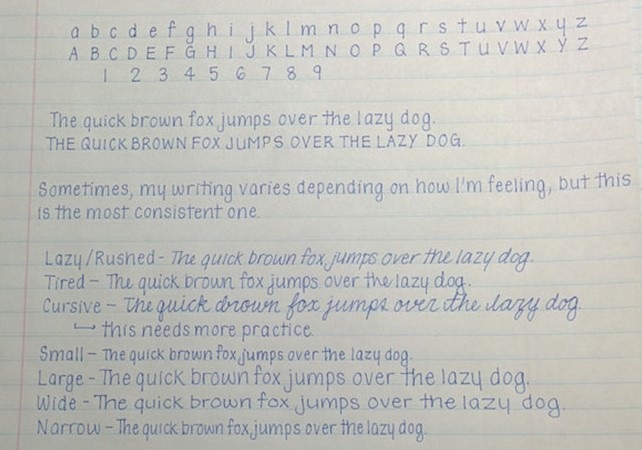 a b c d e f g h i j k l m n o p q r s t u v w x y z
A B C D E F G H I J K L M N O P Q R S T U V W X Y Z
1 2 3 4 5 6 7 8 9
The quick brown fox jumps over the lazy dog.
THE QUICK BROWN FOX JUMPS OVER THE LAZY DOG.
Sometimes, my writing varies depending on how I'm feeling, but this
is the most consistent one.
Lazy/Rushed - The quick brown fox jumps over the lazy dog.
Tired - The quick brown fox jumps over the lazy dog.
Cursive - The quick brown fox jumps over the lazy dog.
↳ this needs more practice.
Small - The quick brown fox jumps over the lazy dog.
Large - The quick brown fox jumps over the lazy dog.
Wide - The quick brown fox jumps over the lazy dog.
Narrow - The quick brown fox jumps over the lazy dog.